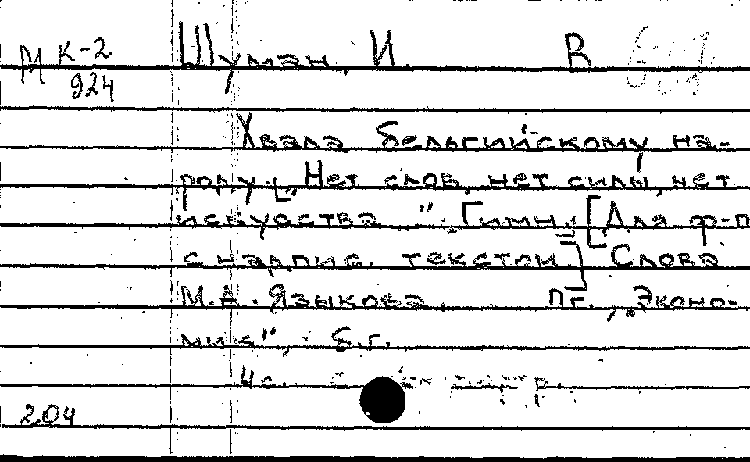 М К-2 Шуман, И. В
924
Хвала бельгийскому на-
роду [„Нет слов, нет силы, нет
искусства...". Гимн. [Для ф-п
с надпис. текстом] Слова
М.А. Языкова. Пг., „Эконо-
мик", б.г.
4 с.
204